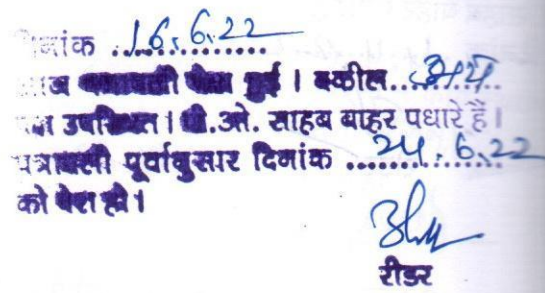 दिनांक 16.6.22
आज पत्रावली पेश हुई । वकील.. उभय
पक्ष उपस्थित । पी.ओ. साहब बाहर पधारे हैं ।
पत्रावली पूर्वानुसार दिनांक 24.6.22
को पेश हो ।
रीडर